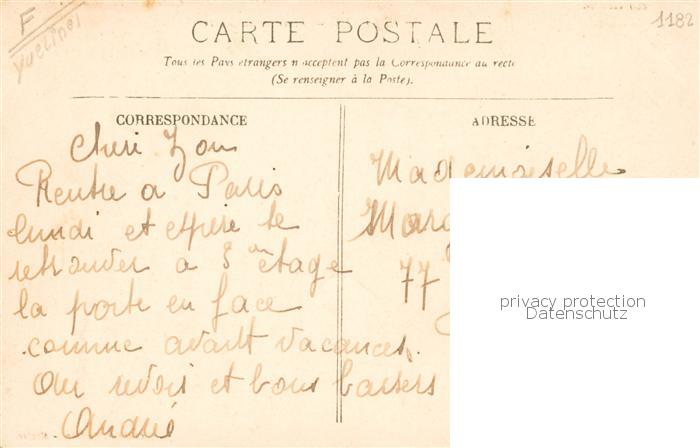 F
Yvelines
1182
CARTE POSTALE
Tous les Pays etrangers n acceptent pas la Correspondance au recto
(Se renseigner à la Poste).
CORRESPONDANCE
Cheri Zou
Rentre a Paris
lundi et espère te
retrouver a 3 me étage
la porte en face
comme avant vacances.
Au revoir et bons baisers
André
ADRESSE
Mademoiselle
77
privacy protection
Datenschutz